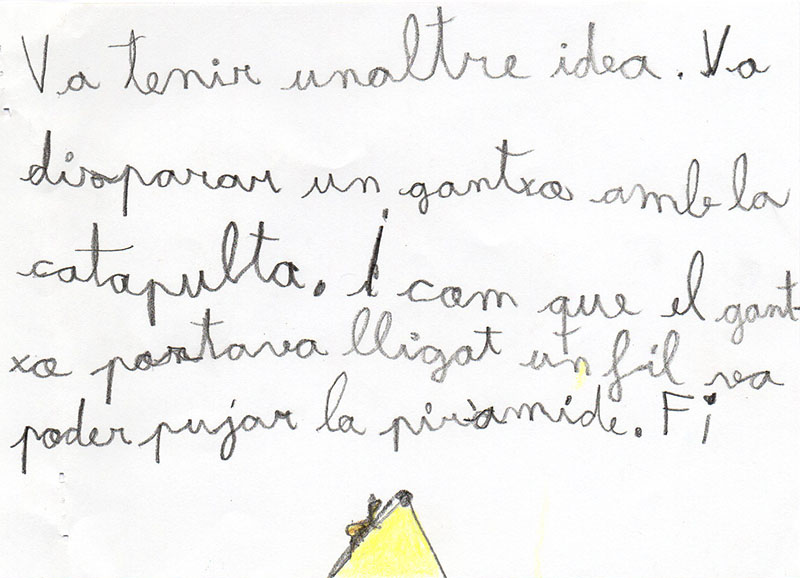 Va tenir unaltre idea. Va
disparar un gantxo amb la
catapulta. I com que el gant-
xo portava lligat un fil va
poder pujar la piràmide. Fi